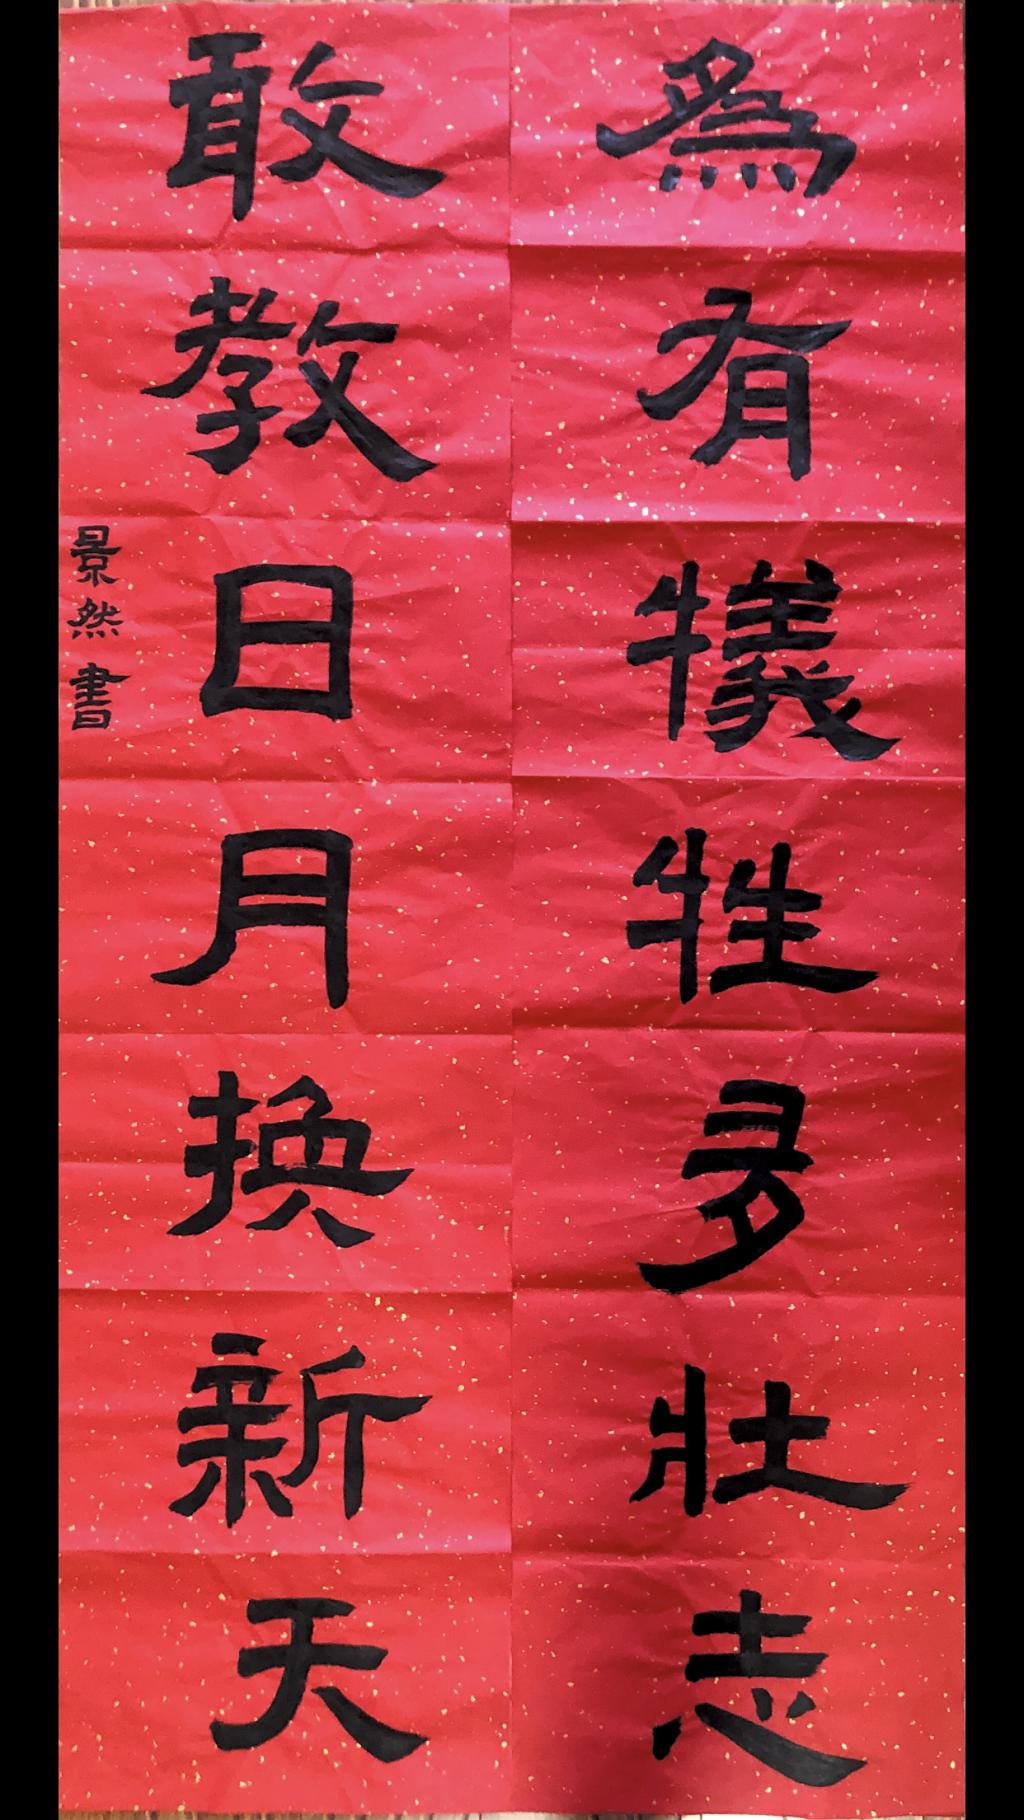 為有犠牲多壯志
敢教日月換新天
景然書